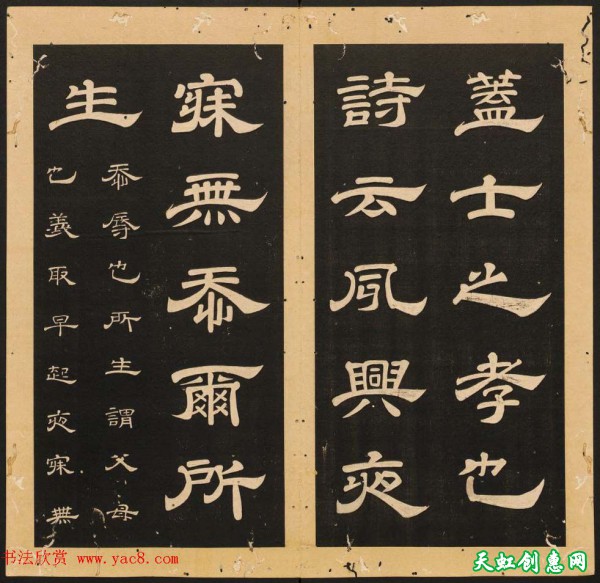 蓋士之孝也
詩云夙興夜
寐無忝爾所
生
忝辱也所生謂父母
也義取早起夜寐無
书法欣赏 www.yac8.com
天虹创惠网